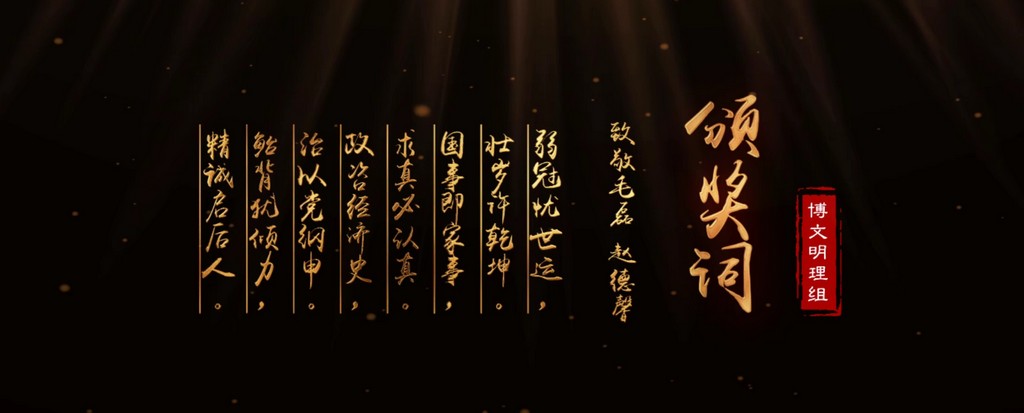 博文明理组
颁奖词
致敬毛磊 赵德馨
弱冠忧世运，
壮岁许乾坤。
国事即家事，
求真必认真。
政治经济史，
治以党纲申。
鲐背犹倾力，
精诚启后人。